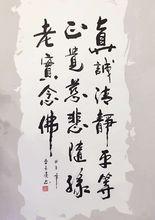 真誠清靜平等
正覺慈悲隨緣
老實念佛